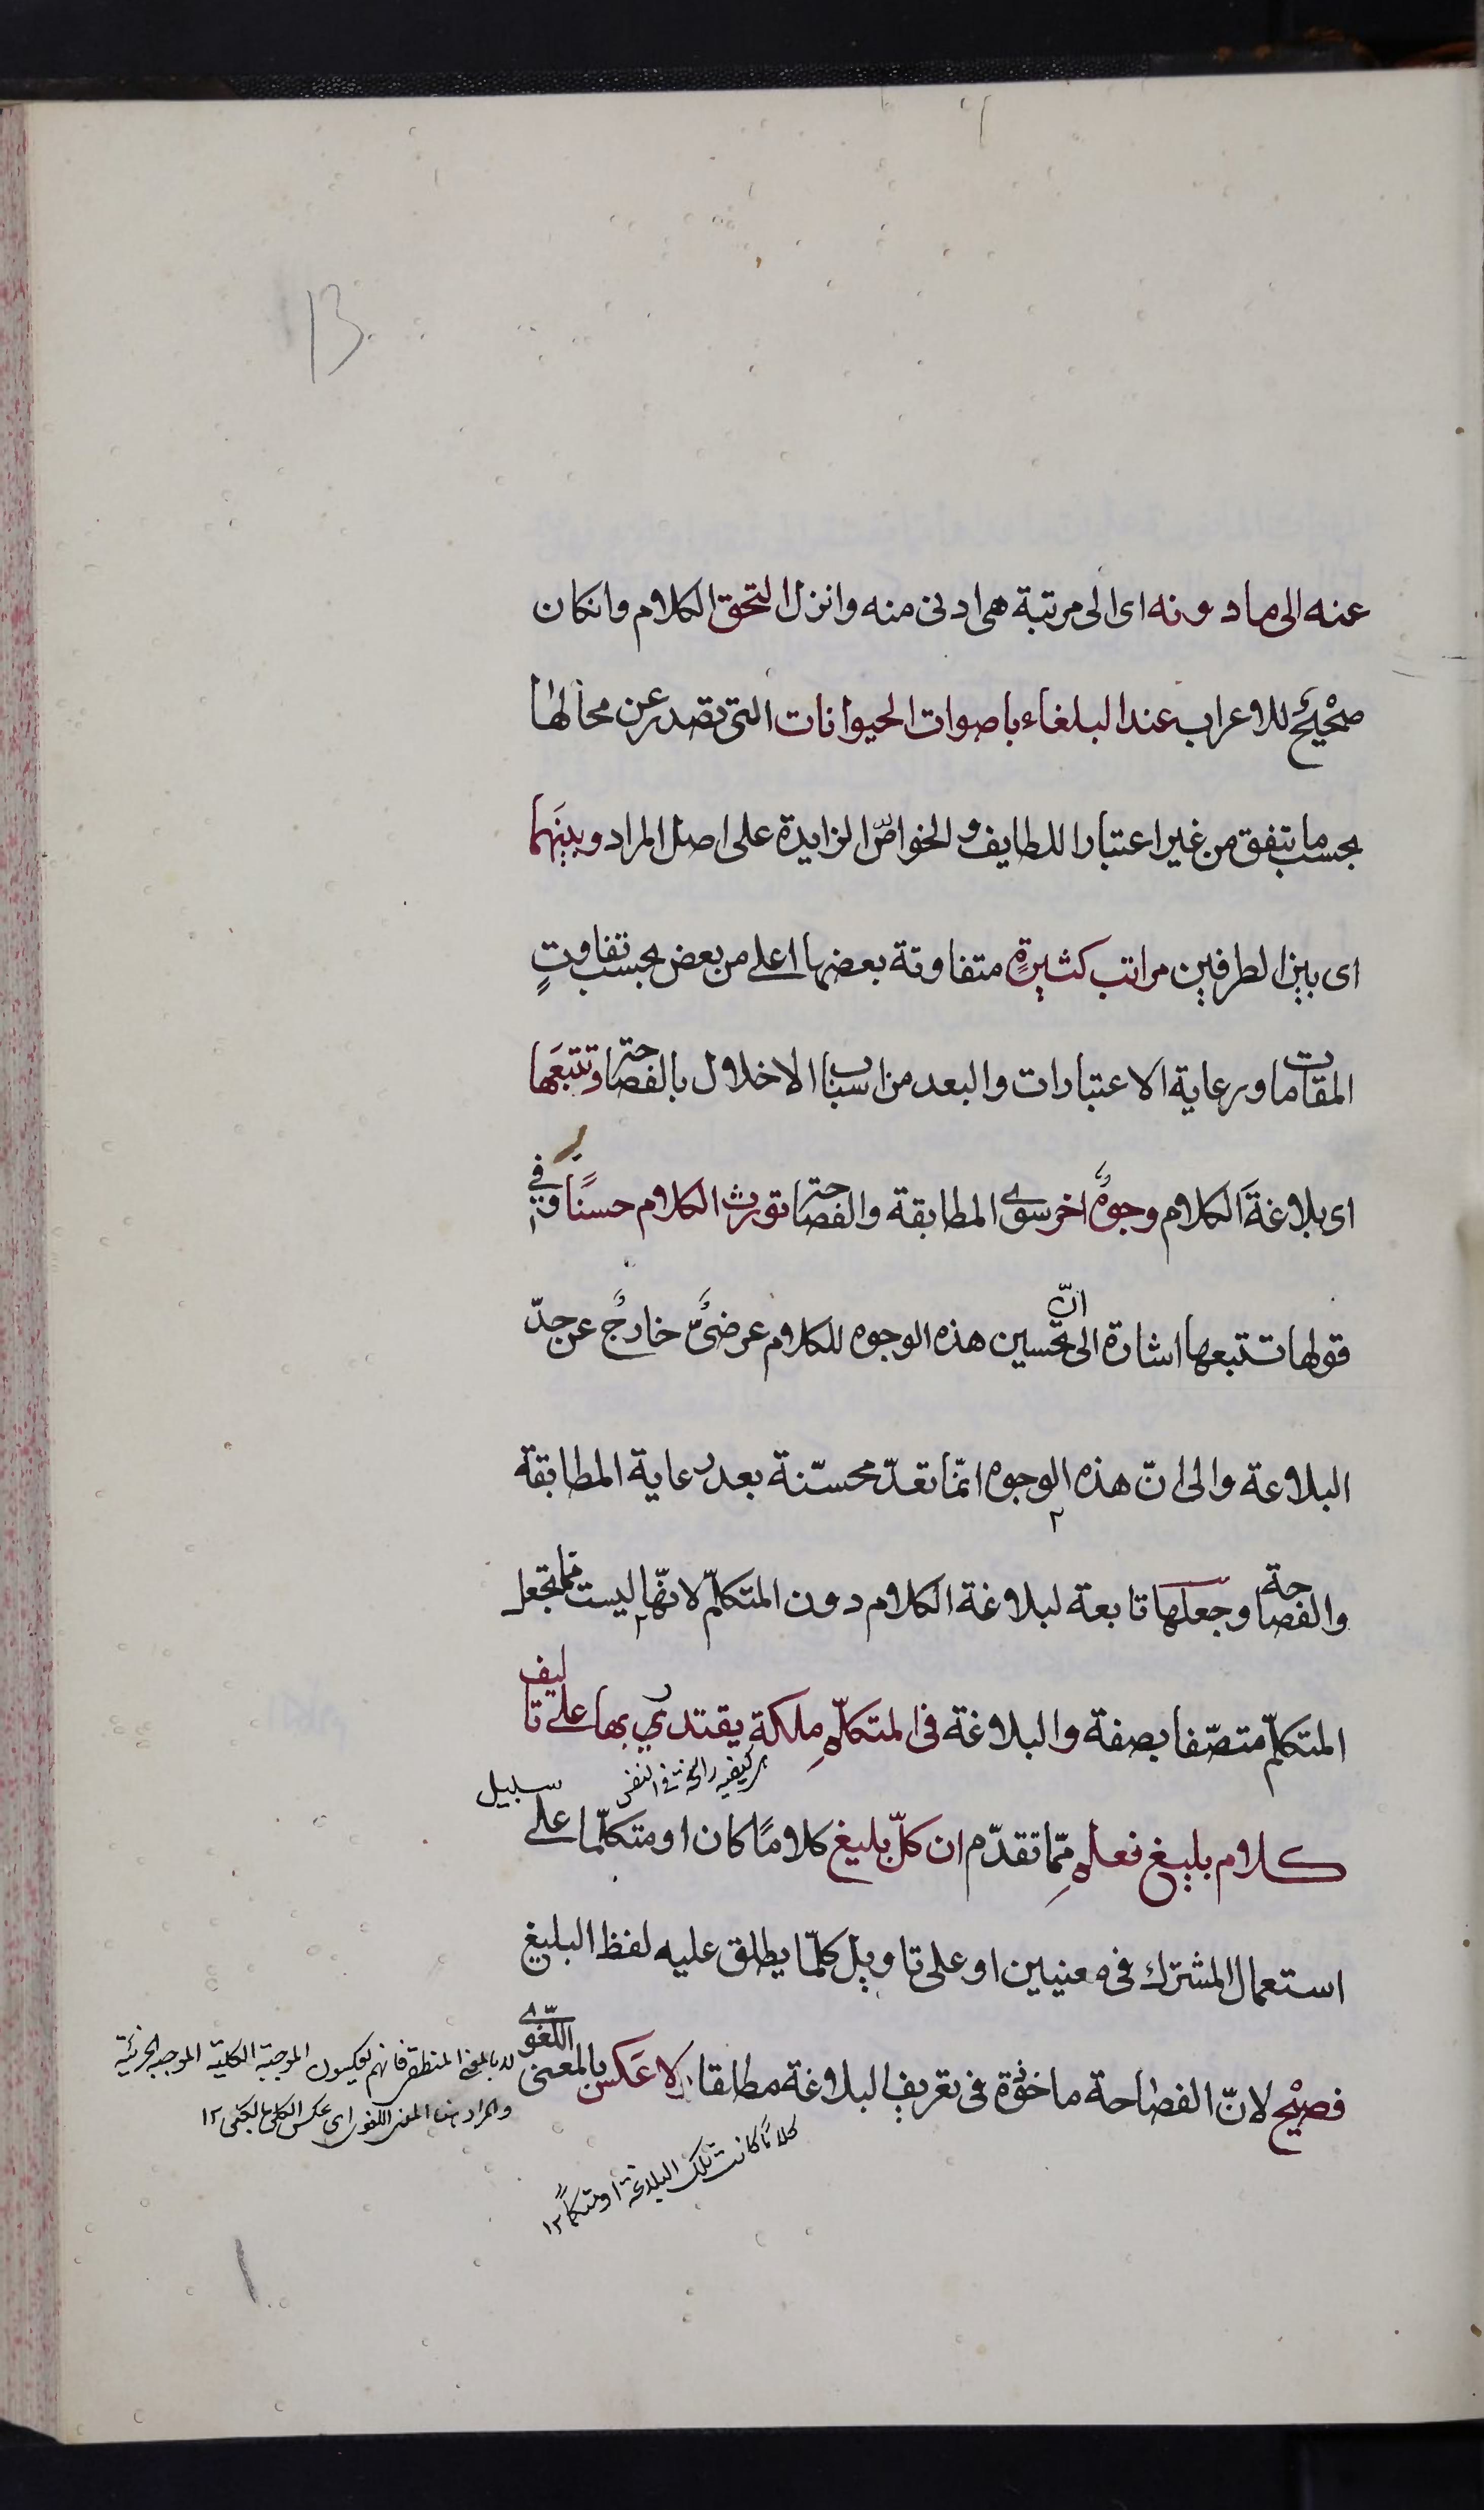 13
عنه الى ما دونه اى الى مرتبة هى ادنى منه وانزل التحق الكلام وانكان
صحيح للاعراب عند البلغاء باصوات الحيوانات التى تصدر عن محالها
بحسب ما تتفق من غير اعتبار اللطايف و الخواصّ الزايدة على اصل المراد وبينَهما
اى بين الطرفين مراتب كثيرةٍ متفاوتة بعضها اعلى من بعض بحسب تفاوتٍ
المقامات ورعاية الاعتبارات والبعد من اسباب الاخلال بالفصاحة وتتبعَها
اى بلاغةَ الكلام وجوهٌ اخر سوى المطابقة والفصاحة تورث الكلام حسنًا وفى
قولها تتبعها اشارة الى انّ تحسين هذه الوجوه للكلام عرضىٌّ خارجٌ عن حدّ
البلاغة والى انّ هذه الوجوه انمّا تعدّ محسّنة بعد رعاية المطابقة
والفصاحة وجعلها تابعة لبلاغة الكلام دون المتكلّم لانهّا ليست ممّا تجعل
المتكلّم متصّفا بصفة والبلاغة فى المتكلّمِ ملكة يقتدر بها على تاليف
كيفية راسخة فى النفس
كلام بليغ فعلمِ ممّا تقدّم ان كلّ بليغ كلامًا كان او متكلّما على سبيل
استعمال المشترك فى معنيين او على تاويل كلّما يطلق عليه لفظ البليغ
فصيْح لانّ الفصاحة ماخوذة فى تعريف البلاغة مطلقا ولا عَكس بالمعنى اللّغوى
كلامًا كانت تلك البلاغة او متكلمًا ١٢
لا بالمعنى المنطقى فانهم يعكسون الموجبة الكلية الموجبة الجزئية
والمراد هنا المعنى اللغوى اى عكس الكلى بالكلى ١٢